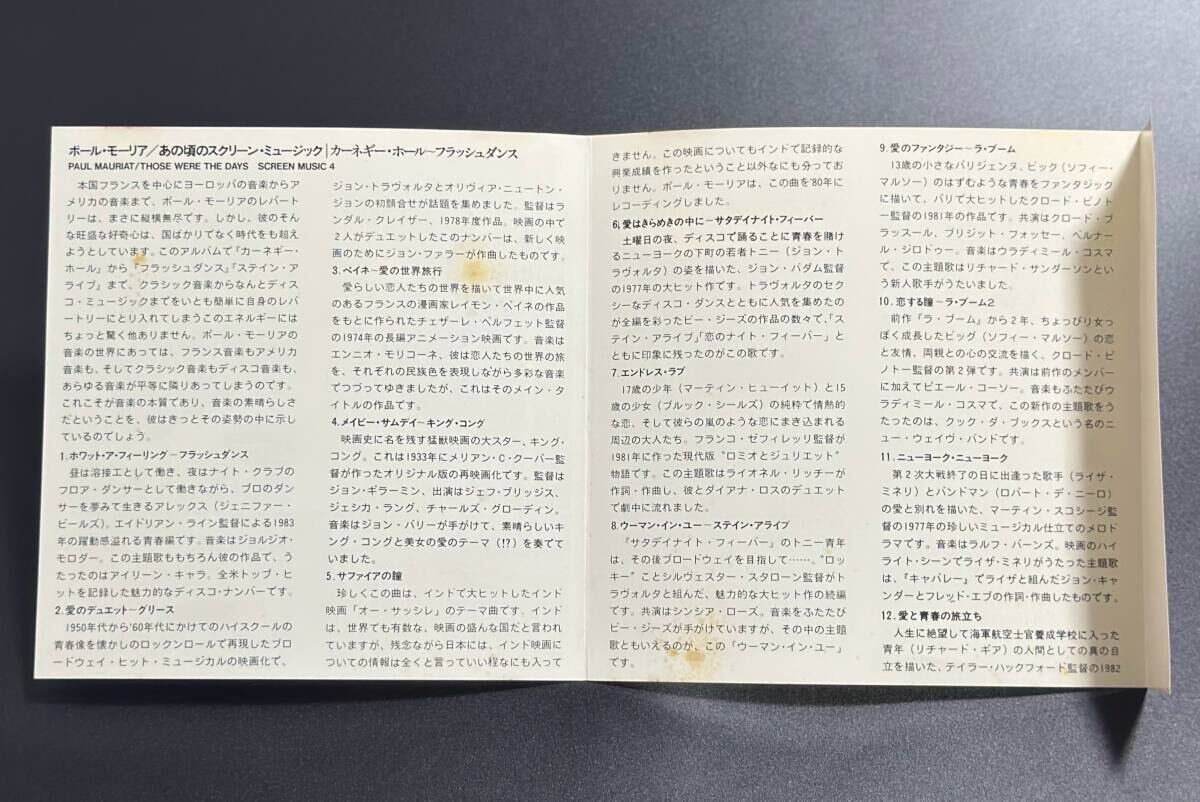 ポール・モーリア/あの頃のスクリーン・ミュージック|カーネギー・ホール〜フラッシュダンス
PAUL MAURIAT/THOSE WERE THE DAYS SCREEN MUSIC 4
本国フランスを中心にヨーロッパの音楽からア
メリカの音楽まで、ポール・モーリアのレパート
リーは、まさに縦横無尽です。しかし、彼のそん
な旺盛な好奇心は、国ばかりでなく時代をも超え
ようとしています。このアルバムで『カーネギー・
ホール』から『フラッシュダンス』『ステイン・ア
ライブ』まで、クラシック音楽からなんとディス
コ・ミュージックまでをいとも簡単に自身のレパ
ートリーにとり入れてしまうこのエネルギーには
ちょっと驚く他ありません。ポール・モーリアの
音楽の世界にあっては、フランス音楽もアメリカ
音楽も、そしてクラシック音楽もディスコ音楽も、
あらゆる音楽が平等に隣りあってしまうのです。
これこそが音楽の本質であり、音楽の素晴らしさ
だということを、彼はきっとその姿勢の中に示し
ているのでしょう。
1.ホワット・ア・フィーリング〜フラッシュダンス
昼は溶接工として働き、夜はナイト・クラブの
フロア・ダンサーとして働きながら、プロのダン
サーを夢みて生きるアレックス(ジェニファー・
ビールズ)。エイドリアン・ライン監督による1983
年の躍動感溢れる青春編です。音楽はジョルジオ・
モロダー。この主題歌ももちろん彼の作品で、う
たったのはアイリーン・キャラ。全米トップ・ヒ
ットを記録した魅力的なディスコ・ナンバーです。
2.愛のデュエット〜グリース
1950年代から'60年代にかけてのハイスクールの
青春像を懐かしのロックンロールで再現したブロ
ードウェイ・ヒット・ミュージカルの映画化で、
ジョン・トラヴォルタとオリヴィア・ニュートン・
ジョンの初顔合せが話題を集めました。監督はラ
ンダル・クレイザー、1978年度作品。映画の中で
2人がデュエットしたこのナンバーは、新しく映
画のためにジョン・ファラーが作曲したものです。
3.ペイネ〜愛の世界旅行
愛らしい恋人たちの世界を描いて世界中に人気
のあるフランスの漫画家レイモン・ペイネの作品
をもとに作られたチェザーレ・ペルフェット監督
の1974年の長編アニメーション映画です。音楽は
エンニオ・モリコーネ、彼は恋人たちの世界の旅
を、それぞれの民族色を表現しながら多彩な音楽
でつづってゆきましたが、これはそのメイン・タ
イトルの作品です。
4.メイビー・サムデイ〜キング・コング
映画史に名を残す猛獣映画の大スター、キング・
コング。これは1933年にメリアン・C・クーパー監
督が作ったオリジナル版の再映画化です。監督は
ジョン・ギラーミン、出演はジェフ・ブリッジス、
ジェシカ・ラング、チャールズ・グローディン。
音楽はジョン・バリーが手がけて、素晴らしいキ
ング・コングと美女の愛のテーマ(!?)を奏でて
いました。
5.サファイアの瞳
珍しくこの曲は、インドで大ヒットしたインド
映画「オー・サッシレ」のテーマ曲です。インド
は、世界でも有数な、映画の盛んな国だと言われ
ていますが、残念ながら日本には、インド映画に
ついての情報は全くと言っていい程なにも入って
きません。この映画についてもインドで記録的な
興業成績を作ったということ以外なにも分ってお
りません。ポール・モーリアは、この曲を'80年に
レコーディングしました。
6.愛はきらめきの中に〜サタデイナイト・フィーバー
土曜日の夜、ディスコで踊ることに青春を賭け
るニューヨークの下町の若者トニー(ジョン・ト
ラヴォルタ)の姿を描いた、ジョン・バダム監督
の1977年の大ヒット作です。トラヴォルタのセク
シーなディスコ・ダンスとともに人気を集めたの
が全編を彩ったビー・ジーズの作品の数々で、「ス
テイン・アライブ」「恋のナイト・フィーバー」と
ともに印象に残ったのがこの歌です。
7.エンドレス・ラブ
17歳の少年(マーティン・ヒューイット)と15
歳の少女(ブルック・シールズ)の純粋で情熱的
な恋、そして彼らの嵐のような恋にまき込まれる
周辺の大人たち。フランコ・ゼフィレッリ監督が
1981年に作った現代版“ロミオとジュリエット”
物語です。この主題歌はライオネル・リッチーが
作詞・作曲し、彼とダイアナ・ロスのデュエット
で劇中に流れました。
8.ウーマン・イン・ユー〜ステイン・アライブ
『サタデイナイト・フィーバー』のトニー青年
は、その後ブロードウェイを目指して……。“ロッ
キー”ことシルヴェスター・スタローン監督がト
ラヴォルタと組んだ、魅力的な大ヒット作の続編
です。共演はシンシア・ローズ。音楽をふたたび
ビー・ジーズが手がけていますが、その中の主題
歌ともいえるのが、この「ウーマン・イン・ユー」
です。
9.愛のファンタジー〜ラ・ブーム
13歳の小さなパリジェンヌ、ビック(ソフィー・
マルソー)のはずむような青春をファンタジック
に描いて、パリで大ヒットしたクロード・ピノト
ー監督の1981年の作品です。共演はクロード・ブ
ラッスール、ブリジット・フォッセー、ベルナー
ル・ジロドゥー。音楽はウラディミール・コスマ
で、この主題歌はリチャード・サンダーソンとい
う新人歌手がうたいました。
10.恋する瞳〜ラ・ブーム2
前作『ラ・ブーム』から2年、ちょっぴり女っ
ぽく成長したビッグ(ソフィー・マルソー)の恋
と友情、両親との心の交流を描く、クロード・ピ
ノトー監督の第2弾です。共演は前作のメンバー
に加えてピエール・コーソー。音楽もふたたびウ
ラディミール・コスマで、この新作の主題歌をう
たったのは、クック・ダ・ブックスという名のニ
ュー・ウェイヴ・バンドです。
11.ニューヨーク・ニューヨーク
第2次大戦終了の日に出逢った歌手(ライザ・
ミネリ)とバンドマン(ロバート・デ・ニーロ)
の愛と別れを描いた、マーティン・スコシージ監
督の1977年の珍しいミュージカル仕立てのメロド
ラマです。音楽はラルフ・バーンズ。映画のハイ
ライト・シーンでライザ・ミネリがうたった主題歌
は、『キャバレー』でライザと組んだジョン・キャ
ンダーとフレッド・エブの作詞・作曲したものです。
12.愛と青春の旅立ち
人生に絶望して海軍航空士官養成学校に入った
青年(リチャード・ギア)の人間としての真の自
立を描いた、テイラー・ハックフォード監督の1982